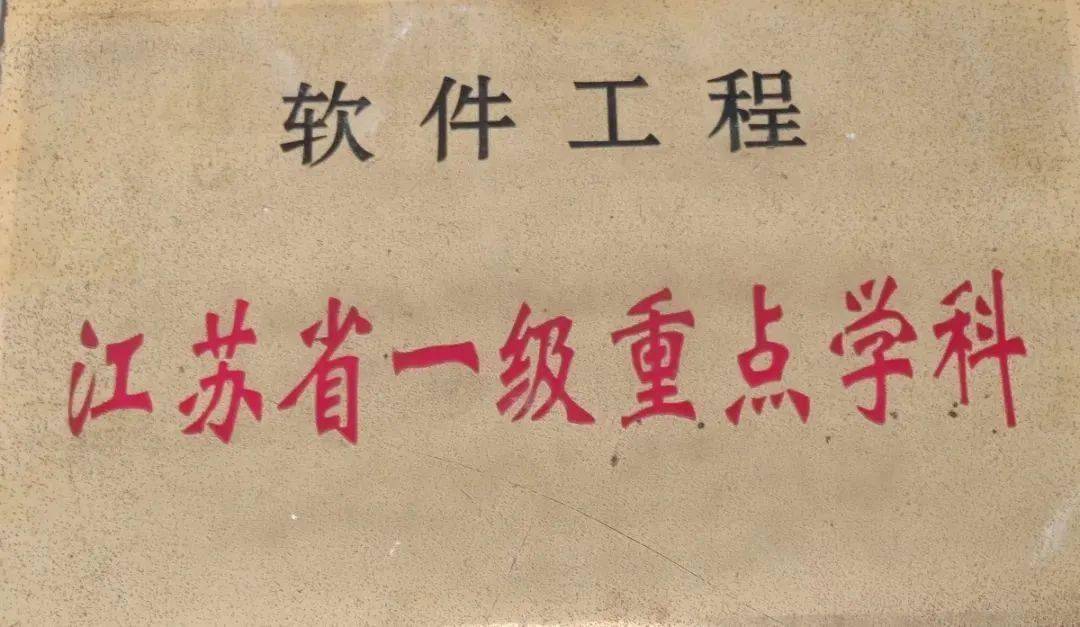 软件工程
江苏省一级重点学科